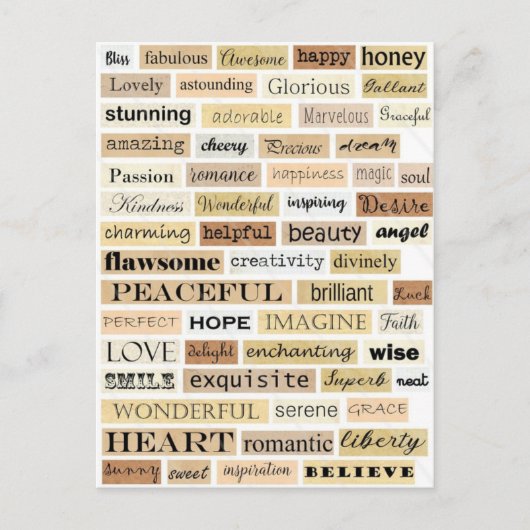 Bliss fabulous Awesome happy honey
Lovely astounding Glorious Gallant
stunning adorable Marvelous Graceful
amazing cheery Precious dream
Passion romance happiness magic soul
Kindness Wonderful inspiring Desire
charming helpful beauty angel
flawsome creativity divinely
PEACEFUL brilliant Luck
PERFECT HOPE IMAGINE Faith
LOVE delight enchanting wise
SMILE exquisite Superb neat
WONDERFUL serene GRACE
HEART romantic liberty
sunny sweet inspiration BELIEVE